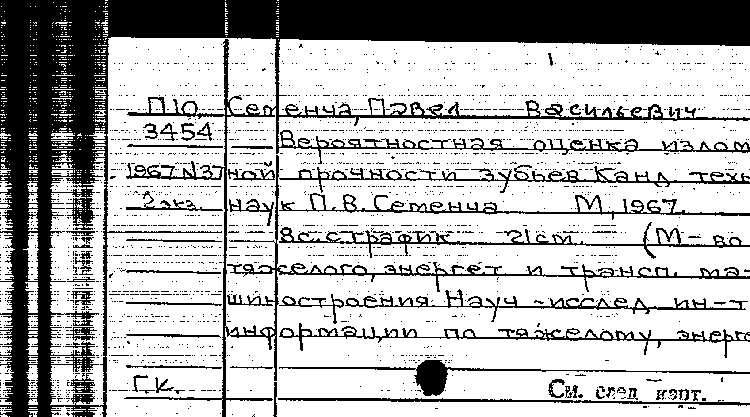 П10 Семенча, Павел Васильевич
3454 Вероятностная оценка излом
1967 N37 ной прочности зубьев Канд. техн
2 экз. наук П.В. Семенча М, 1967.
8с. с график. 21см. (М-во
тяжелого, энергет и трансп. ма-
шиностроения. Науч-исслед. ин-т
информации по тяжелому, энерге
Г.К. См. след карт.